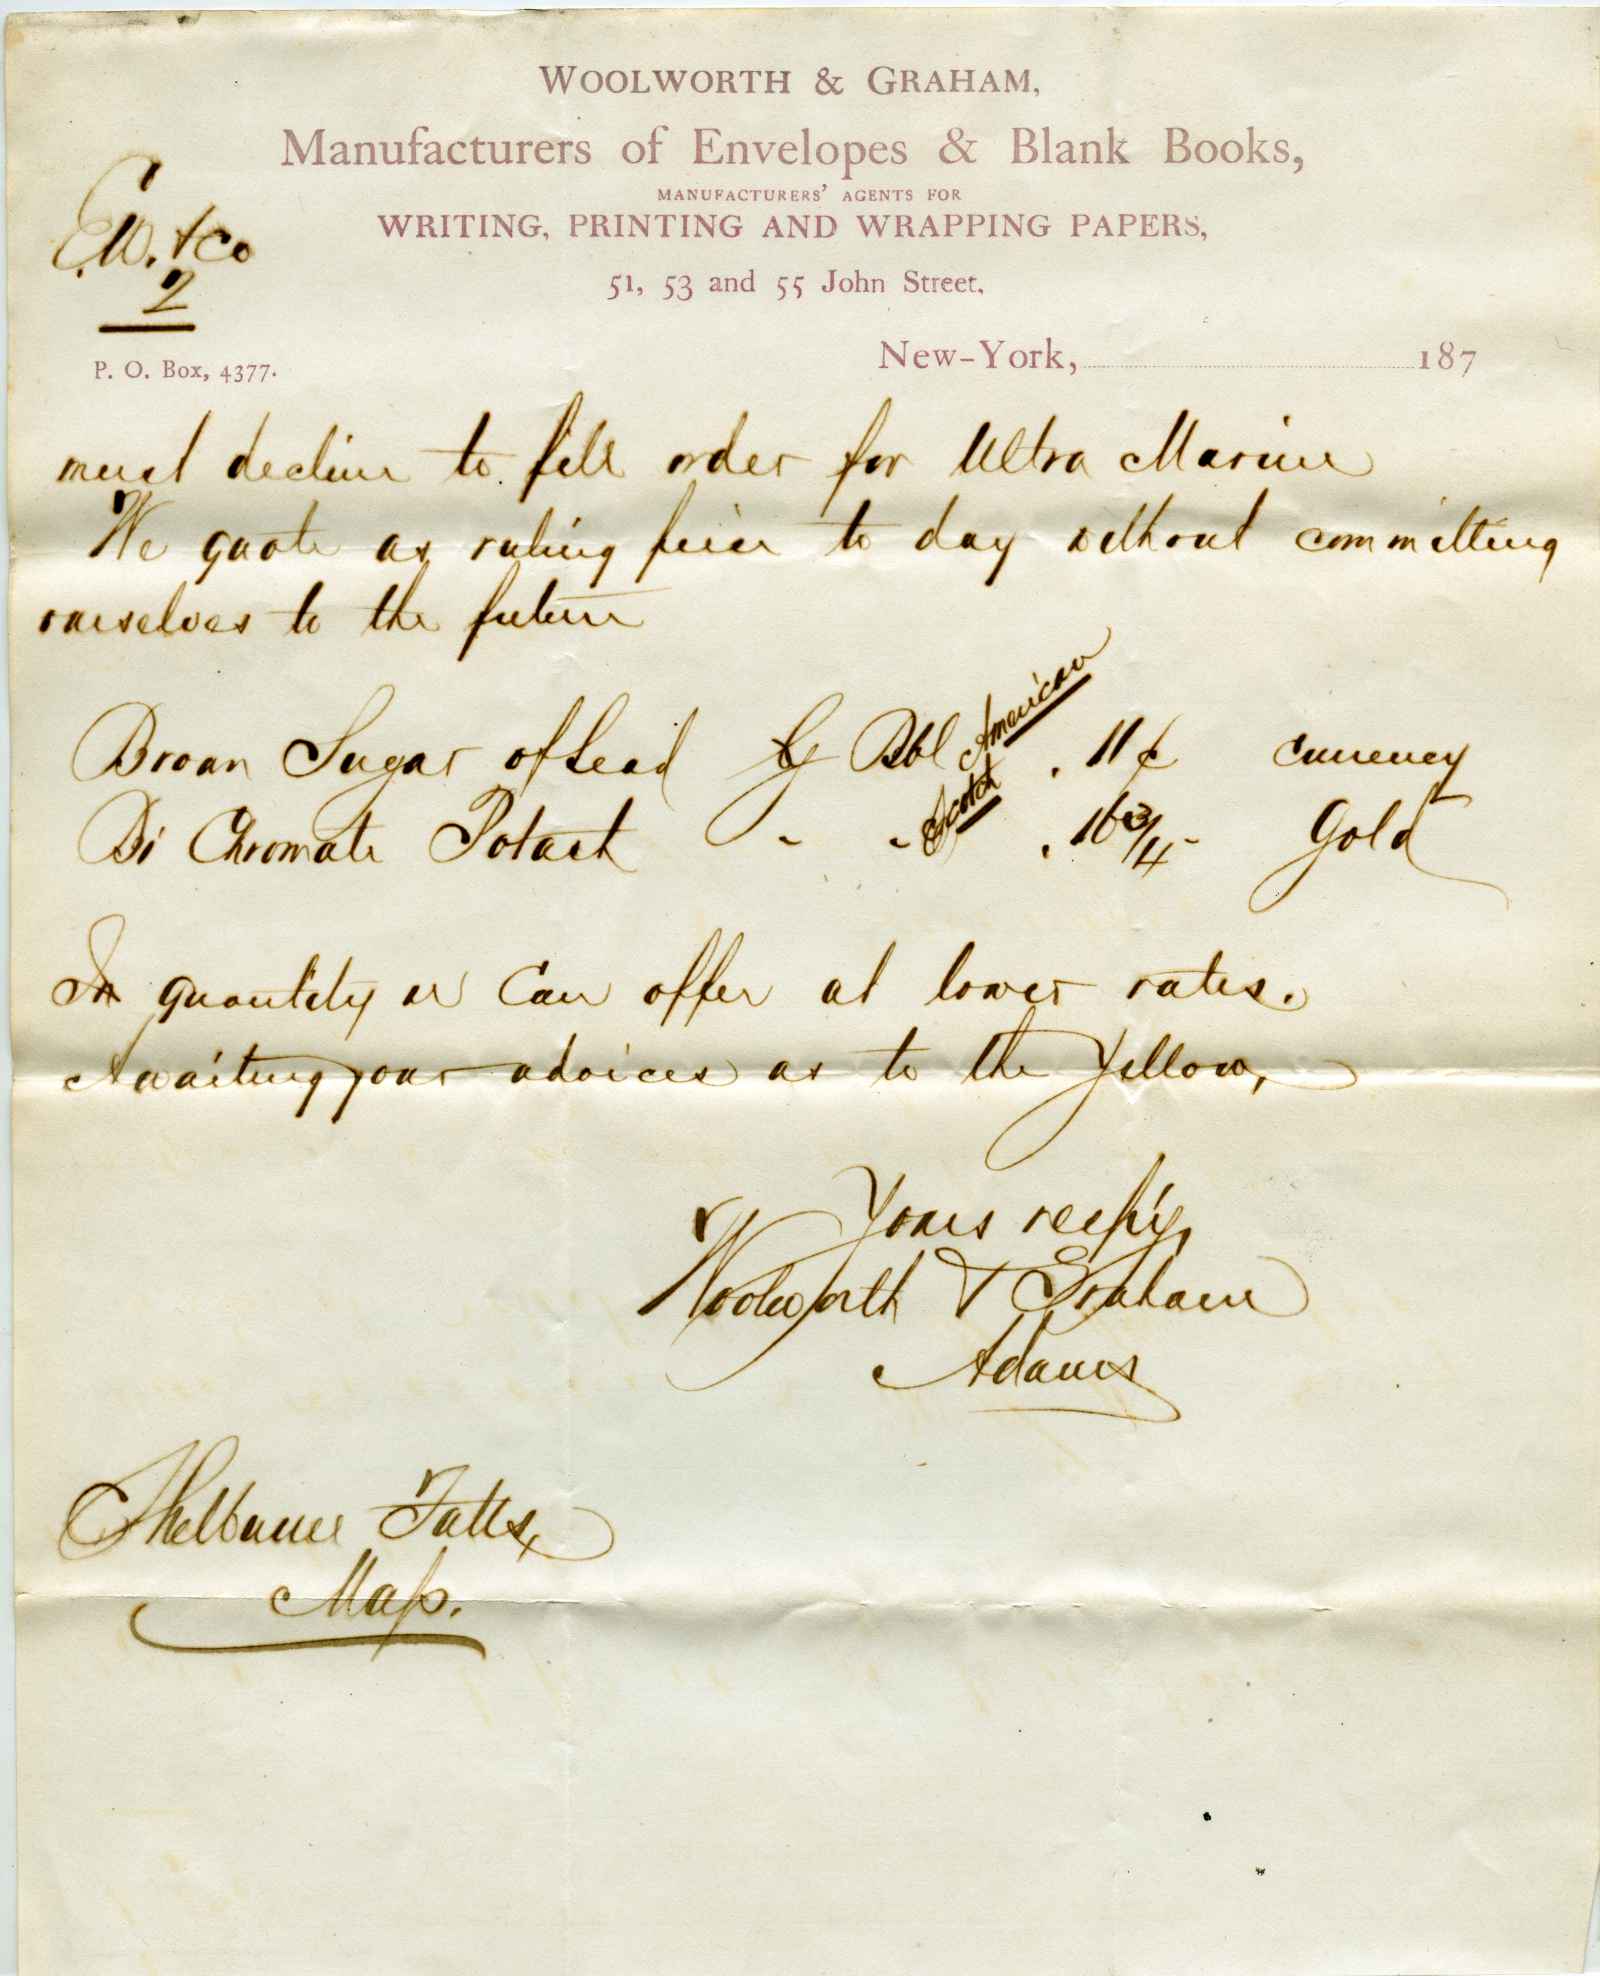 WOOLWORTH & GRAHAM,
Manufacturers of Envelopes & Blank Books,
MANUFACTURERS' AGENTS FOR
WRITING, PRINTING AND WRAPPING PAPERS,
51, 53 and 55 John Street,
E.W. & Co
2
P. O. Box, 4377.
New-York, 187
must decline to fill order for Ultra Marine
We quote as ruling price to day without committing
ourselves to the future
Brown Sugar of Lead by Bbl American . 11 ¢ currency
Bi Chromate Potash " " Scotch . 16 3/4 - Gold
In quantity we can offer at lower rates.
Awaiting your advices as to the Yellow,
Yours resp'y,
Woolworth & Graham
Adams
Shelburne Falls,
Mass.